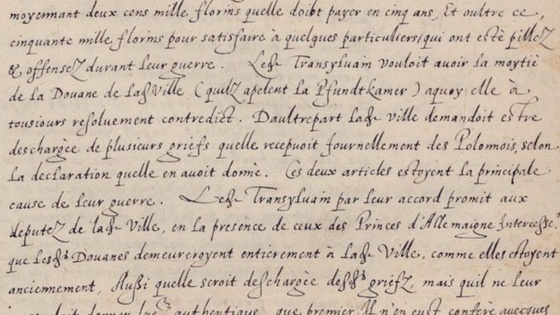 moyennant deux cens mille florins quelle doibt payer en cinq ans, Et oultre ce,
cinquante mille florins pour satisfaire à quelques particuliers/qui ont esté pillez
& offensez durant leur guerre. Ledt Transylvain vouloit avoir la moytié
de la Douane de ladt Ville (quilz apelent la Pfundtkamer) aquoy elle à
tousiours resoluement contredict. Daultrepart ladt ville demandoit estre
deschargée de plusieurs griefs quelle recepvoit journellement des Polonnois, selon
la declaration quelle en avoit donné. Ces deux articles estoyent la principale
cause de leur guerre. Ledt Transylvain par leur accord promit aux
deputez de ladt Ville, en la presence de ceux des Princes d'Allemaigne
que lesdts Douanes demeureroyent entierement à ladt Ville, comme elles estoyent
anciennement, Aussi quelle seroit deschargée desdts griefz, mais quil ne leur
authentique, que premier Il n'en eust conferé avecques